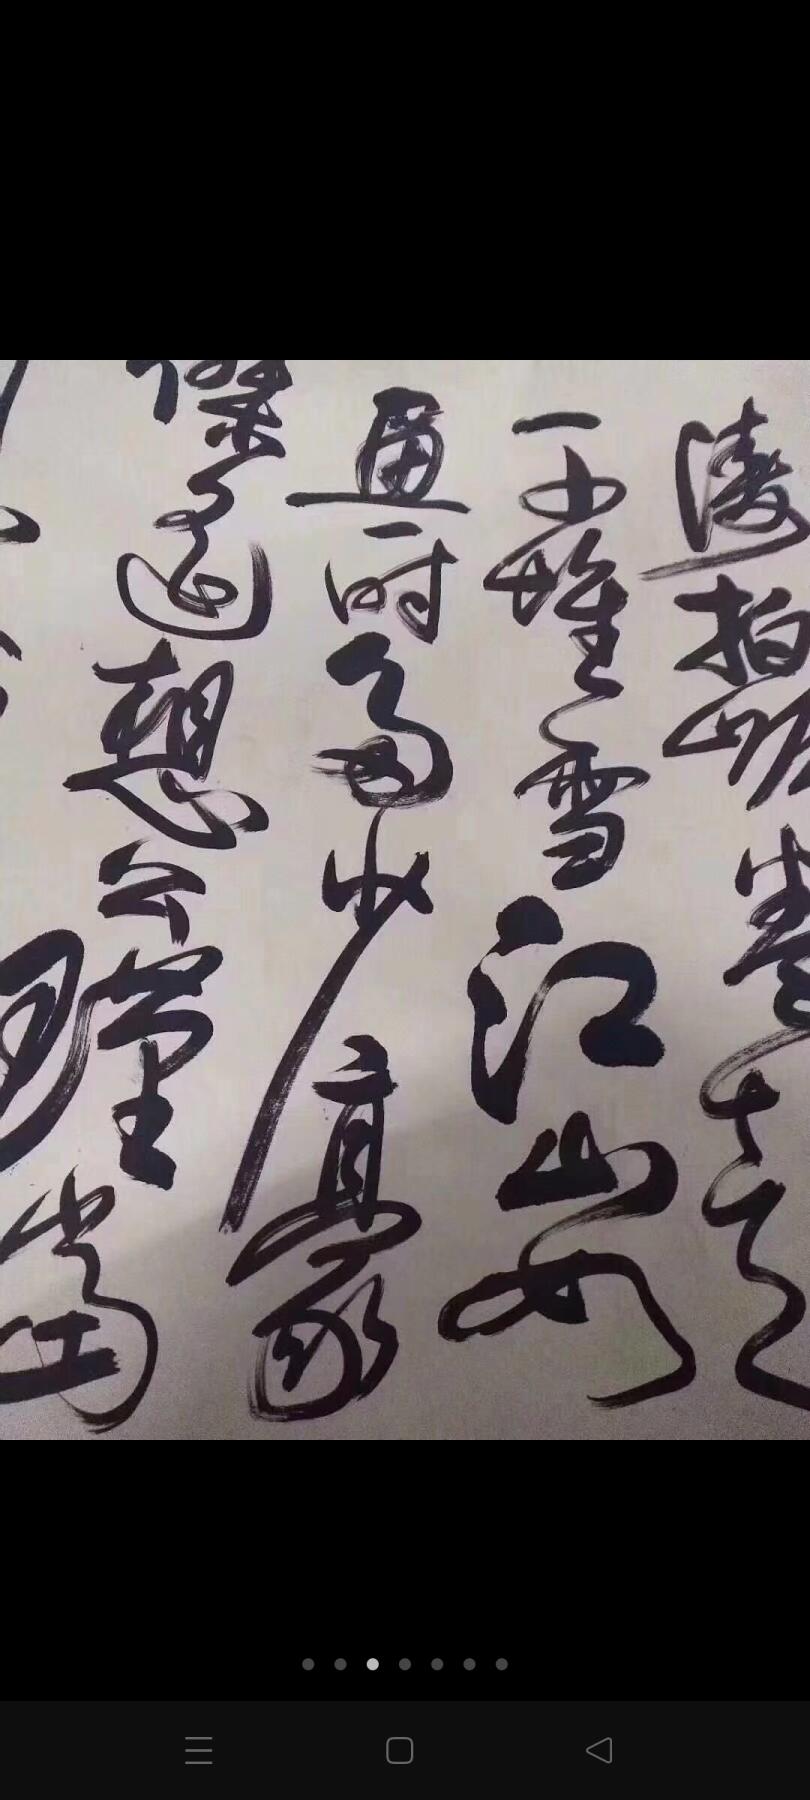 涛拍岸卷起
千堆雪江山如
画一时多少豪
傑遥想公瑾當